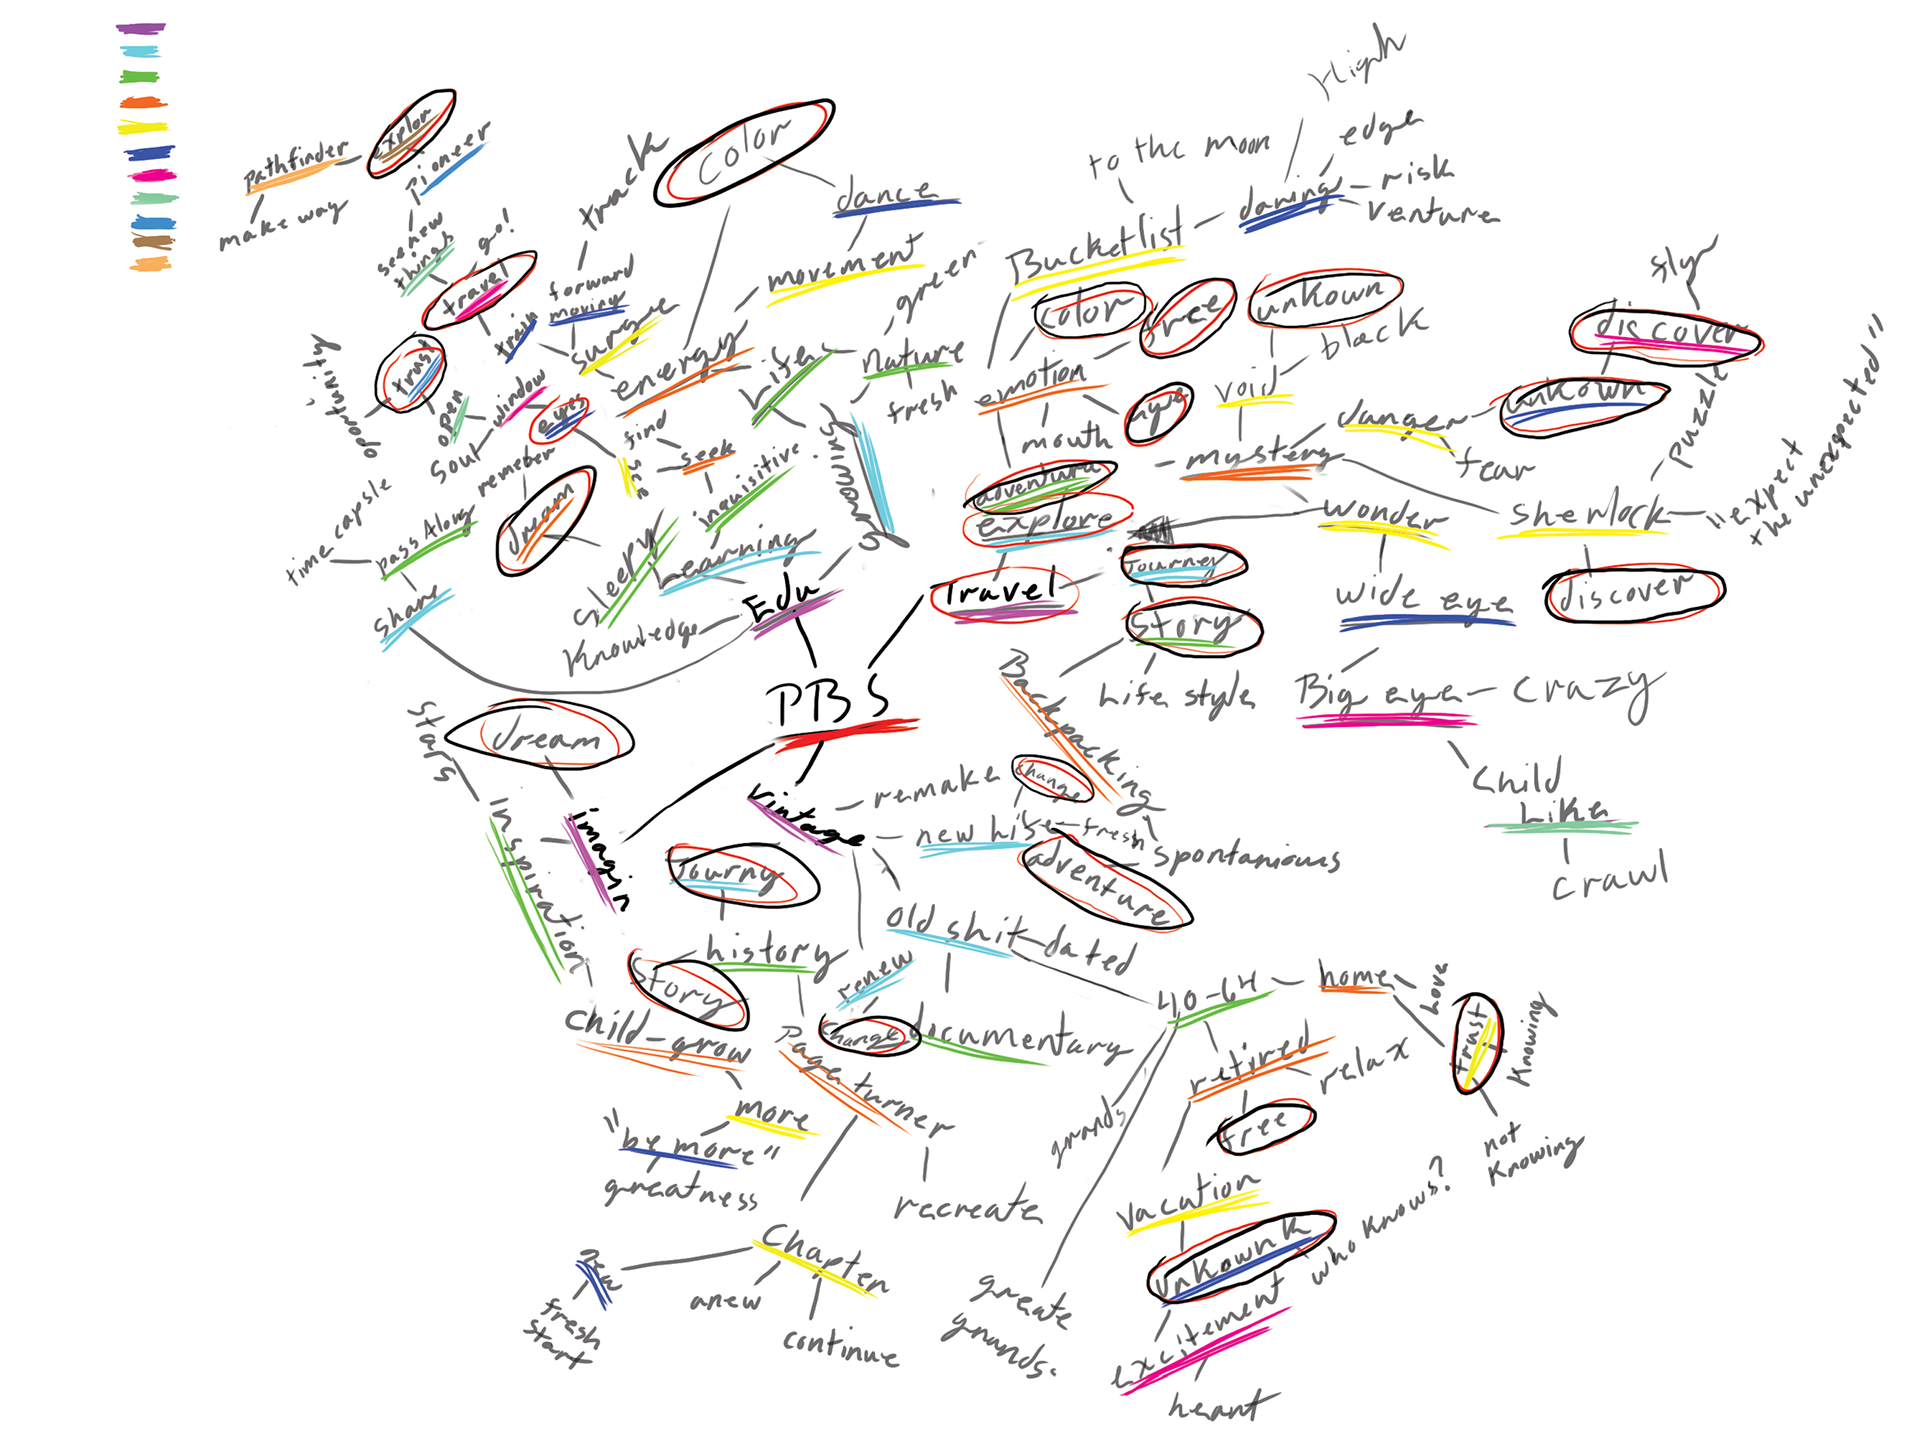 High
edge
to the moon
risk
daring
venture
Bucketlist
explor
Pioneer
pathfinder
make way
see new
things
go!
travel
track
color
dance
movement
forward
moving
train
surgue
energy
Life
green
nature
fresh
Growing
trust
oportunity
open
window
eyes
soul
remeber
find
seek
inquisitive
dream
sleepy
Learning
time capsle
pass Along
share
Knowledge
Edu
color
free
unkown
black
void
emotion
eye
mouth
mystery
danger
fear
unkown
discover
puzzle
"expect
the unexpected"
Sherlock
discover
wonder
wide eye
Big eye
crazy
child
Like
crawl
adventure
explore
Travel
Journey
Story
Life style
Backpacking
spontanious
PBS
stars
dream
imagin
Inspiration
vintage
remake
change
new life
fresh
adventure
Journy
history
Story
old shit
dated
renew
change
documentary
child-grow
more
"be more"
greatness
Page turner
recreate
Chapter
new
fresh
start
anew
continue
40-64
home
Love
trust
Knowing
not
Knowing
retired
relax
free
grands
greate
grands.
vacation
unkownk
who knows?
excitement
heart